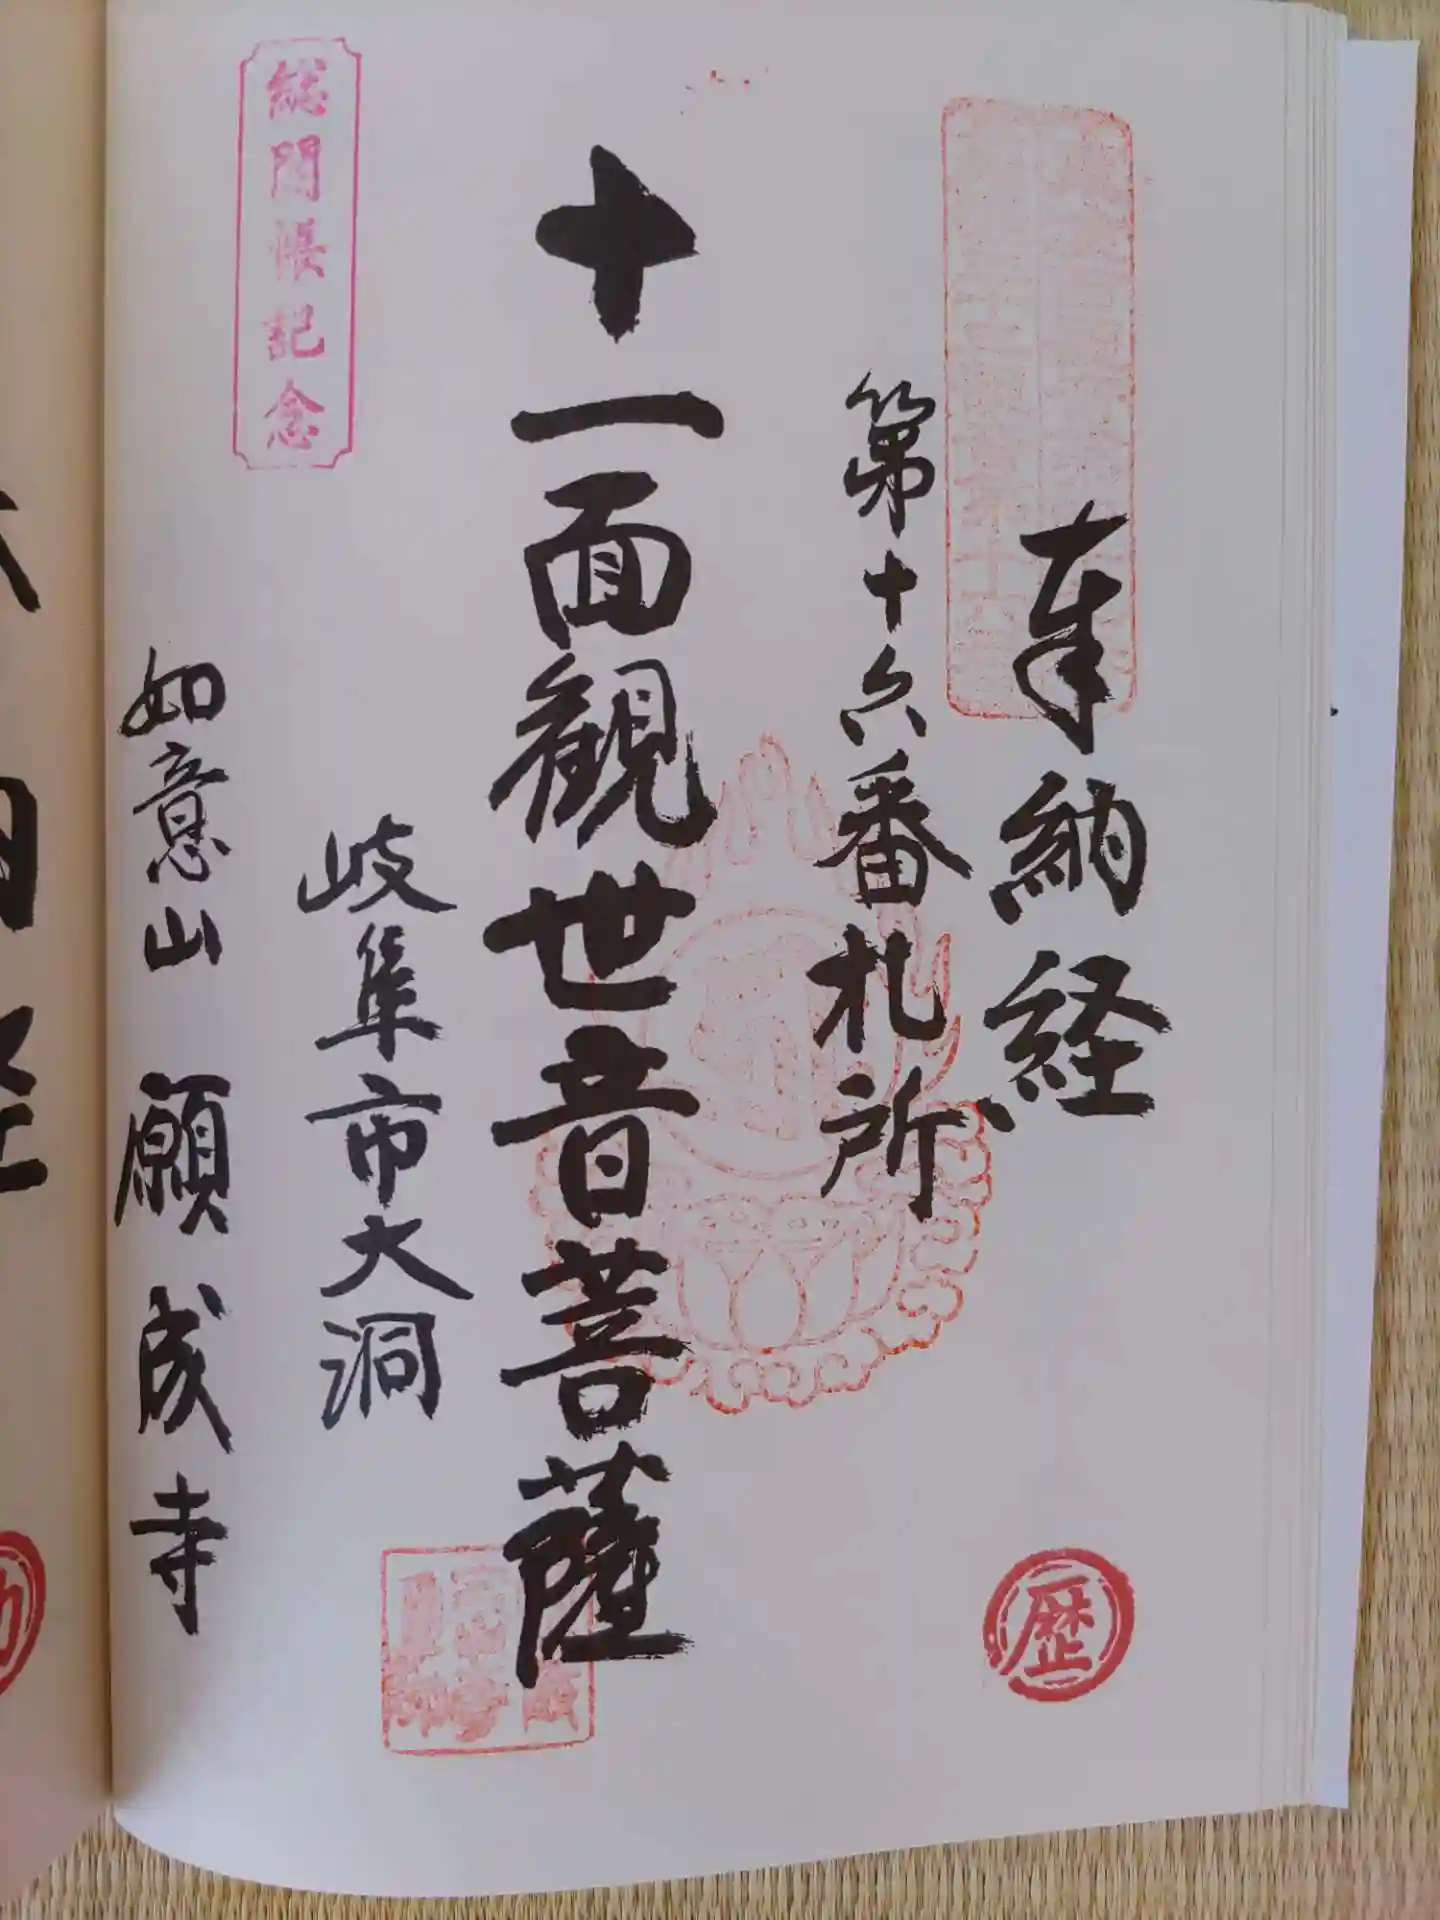 奉納経
第十六番札所
十一面観世音菩薩
岐阜市大洞
如意山 願成寺
総開帳記念
歴